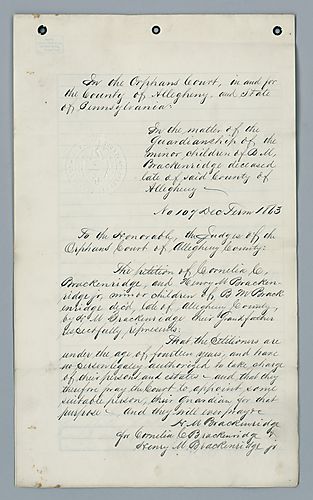 In the Orphans Court, in and for
the County of Allegheny, and State
of Pennsylvania:
In the matter of the
Guardianship of the
minor children of B. M.
Brackenridge deceased
late of said County of
Allegheny
No 107 Dec Term 1863
To the Honorable, the Judges of the
Orphans Court of Allegheny County:
The petition of Cornelia C.
Brackenridge, and Henry M Bracken-
ridge jr, minor children of B. M. Brack
enridge decd, late of Allegheny County,
by H. M Brackenridge their Grandfather
respectfully, represents.
That the Petitioners are
under the age of fourteen years, and have
no person legally authorized to take charge
of their persons, and estates - and that they
therefore pray the Court to appoint some
suitable person, their Guardian for that
purpose - and they will ever pray &
H. M Brackenridge
for Cornelia C Brackenridge &
Henry M Brackenridge jr